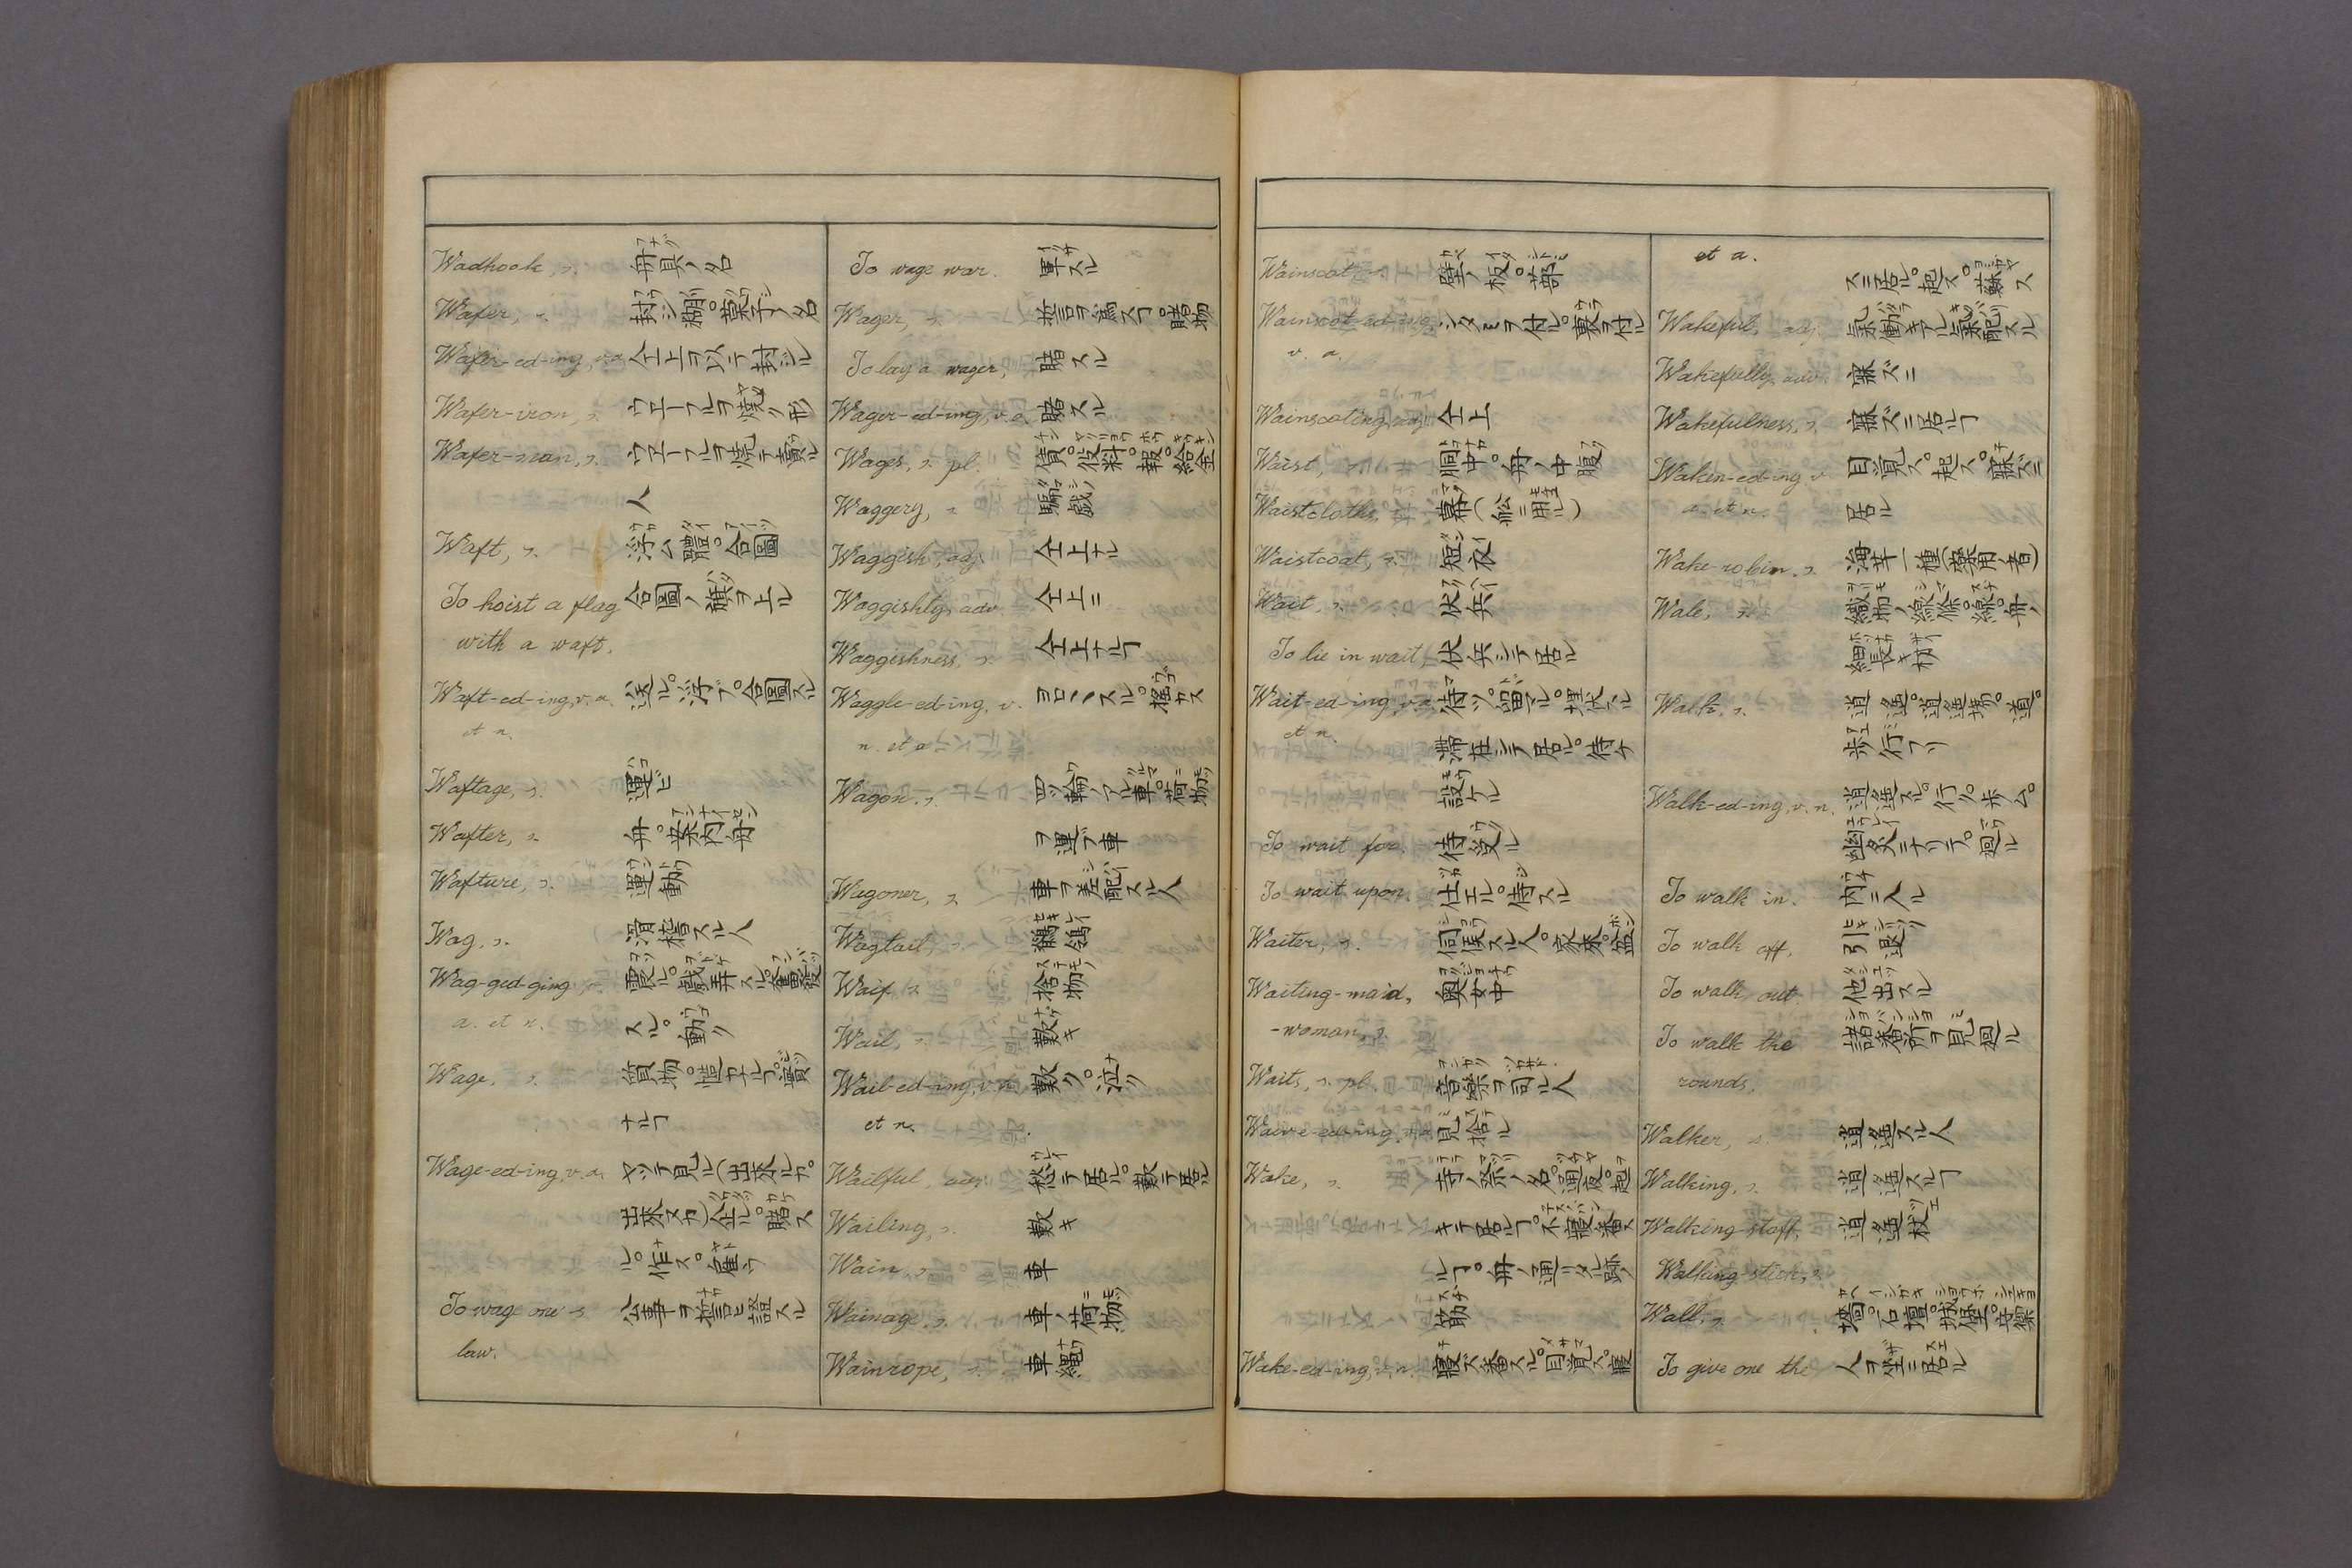 Wadhook, s. 舟具ノ名
Wafer, s. 封シ糊。菓子ノ名
Wafer-ed-ing, v.a. 仝上ヲ以テ封ジル
Wafer-iron, s. ウエーフルヲ焼ク形
Wafer-man, s. ウエーフルヲ焼テ賣ル
人
Waft, s. 浮ム體。合圖
To hoist a flag 合圖ノ旗ヲ上ル
with a waft.
Waft-ed-ing, v.a. 送ル。浮ブ。合圖スル
et n.
Waftage, s. 運ビ
Wafter, s. 舟。案内舟
Wafture, s. 運動
Wag, s. 滑稽スル人
Wag-ged-ging, v. 震ル。戯弄スル。奮發
a. et n. スル。動ク
Wage, s. 質物。
ナルヿ
Wage-ed-ing, v.a. ヤツテ見ル(出来ルカ。
出来ヌカ)企ル。賭ス
ル。作ス。雇ウ
To wage one's 公事ヲ誓ヒ證スル
law.
To wage war. 軍スル
Wager, s. 誓言ヲ為スヿ。賭物
To lay a wager, 賭スル
Wager-ed-ing, v.a. 賭スル
Wages, s. pl. 債。役料。報。給金
Waggery, s. 騙戯
Waggish, adj. 仝上ナル
Waggishly, adv. 仝上ニ
Waggishness, s. 仝上ナルヿ
Waggle-ed-ing, v. ヨロヽヽスル。搖カス
n. et a.
Wagon, s. 四ツ輪ノアル車。荷物
ヲ運ブ車
Wagoner, s. 車ヲ差配スル人
Wagtail, s. 鶺鴒
Waif, s. 捨物
Wail, s. 歎キ
Wail-ed-ing, v.a. 歎ク。泣ク
et n.
Wailful, adj. 愁テ居ル。歎テ居ル
Wailing, s. 歎キ
Wain, s. 車
Wainage, s. 車ノ荷物
Wainrope, s. 車縄
Wainscot, s. 壁ノ板。蔀
Wainscot-ed-ing, シタミヲ付ル。裏ヲ付ル
v. a.
Wainscoting, adj. 仝上
Waist, s. 胴中。舟ノ中腹
Waistcloths, 幕(舩ニ用ル)
Waistcoat, s. 短衣
Wait, s. 伏兵
To lie in wait, 伏兵シテ居ル
Wait-ed-ing, v.a. 待ツ。留マル。埋伏スル
et n. 滞在シテ居ル。待ケ
設ケル
To wait for. 待受ル
To wait upon. 仕エル。侍スル
Waiter, s. 伺候スル人。家来。盆
Waiting-maid, 奥女中
-woman, s.
Waits, s. pl. 音樂ヲ司ル人
Waive-ed-ing, v.a. 見捨ル
Wake, s. 寺ノ祭ノ名。通夜。起
キテ居ルヿ。不寝番ス
ルヿ。舟ノ通リタル跡ノ
筋
Wake-ed-ing, v.n. 寝ズ番スル。目覚ス。寝
et a. ズニ居ル。起ス。蘇ス
Wakeful, adj. 氣働キアル氣配スル
Wakefully, adv. 寐ズニ
Wakefulness, s. 寐ズニ居ルヿ
Waken-ed-ing, v. 目覚ス。起ス。寐ズニ
a. et n. 居ル
Wake-robin, s. 海芋一種(藥用ノ者)
Wale, s. 織物ノ線條。線。舟ノ
細長キ材
Walk, s. 逍遥。逍遥場。道。
歩行フリ
Walk-ed-ing, v.n. 逍遥スル。行ク。歩ム。
幽灵ニナリテ。廻ル
To walk in. 内ニ入ル
To walk off. 引退ク
To walk out. 他出スル
To walk the 諸番所ヲ見廻ル
rounds.
Walker, s. 逍遥スル人
Walking, s. 逍遥スルヿ
Walking-staff, 逍遥杖
Walking-stick, s.
Wall, s. 墻。石壇。城堡。守禦
To give one the 人ヲ坐ニ居ル